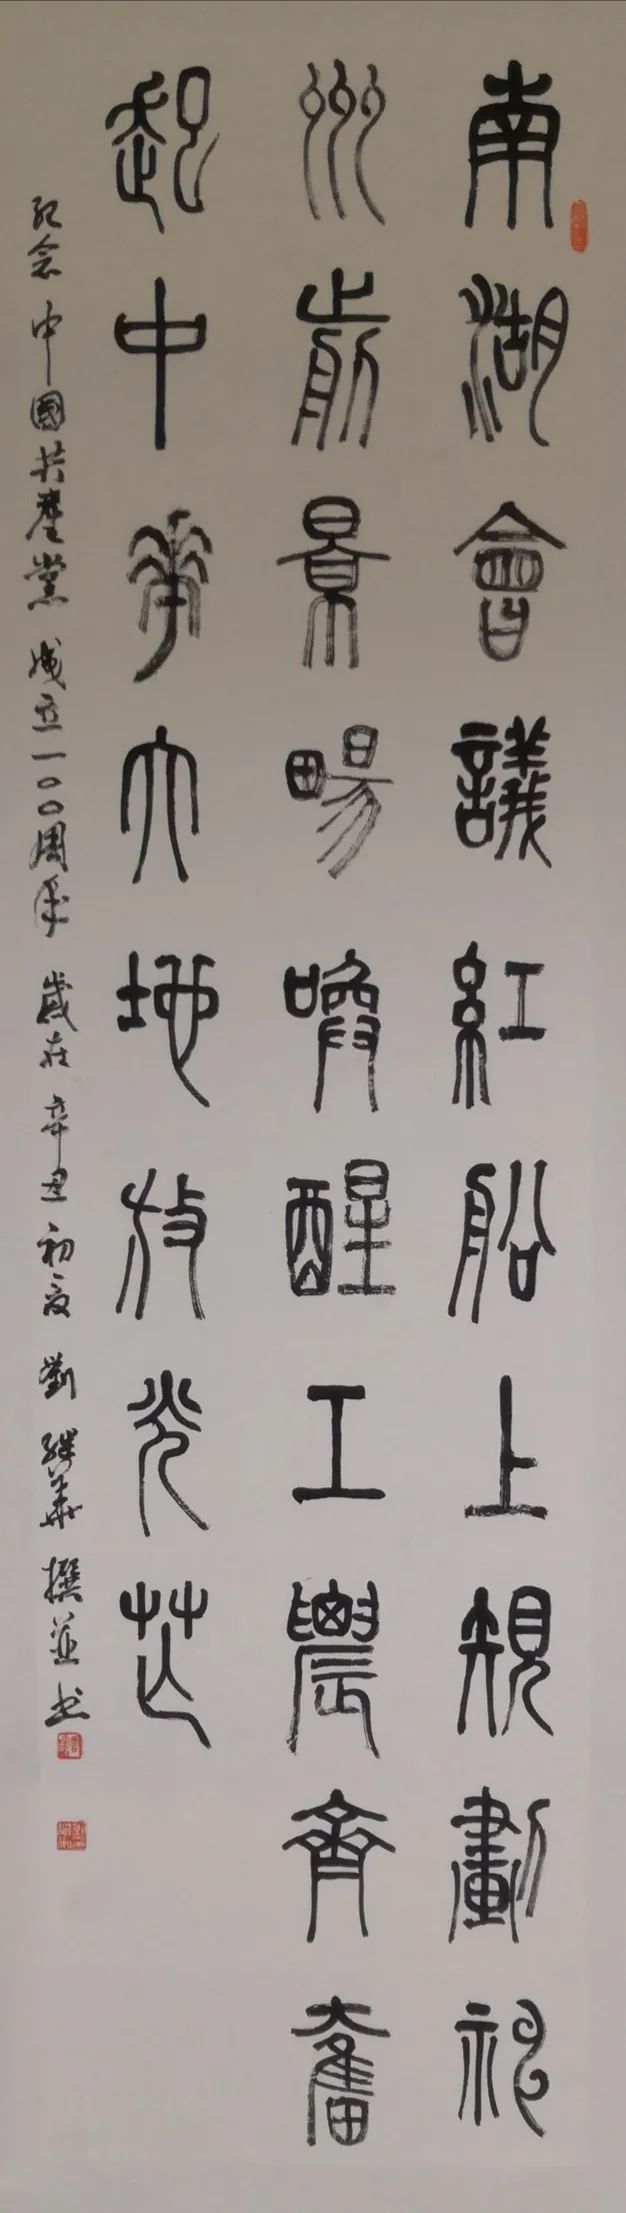 南湖會議紅船上規劃神
州前景暢喚醒工農齊奮
起中華大地放光芒
紀念中國共產黨成立一〇〇周年 歲在辛丑初夏 劉繼華撰並书